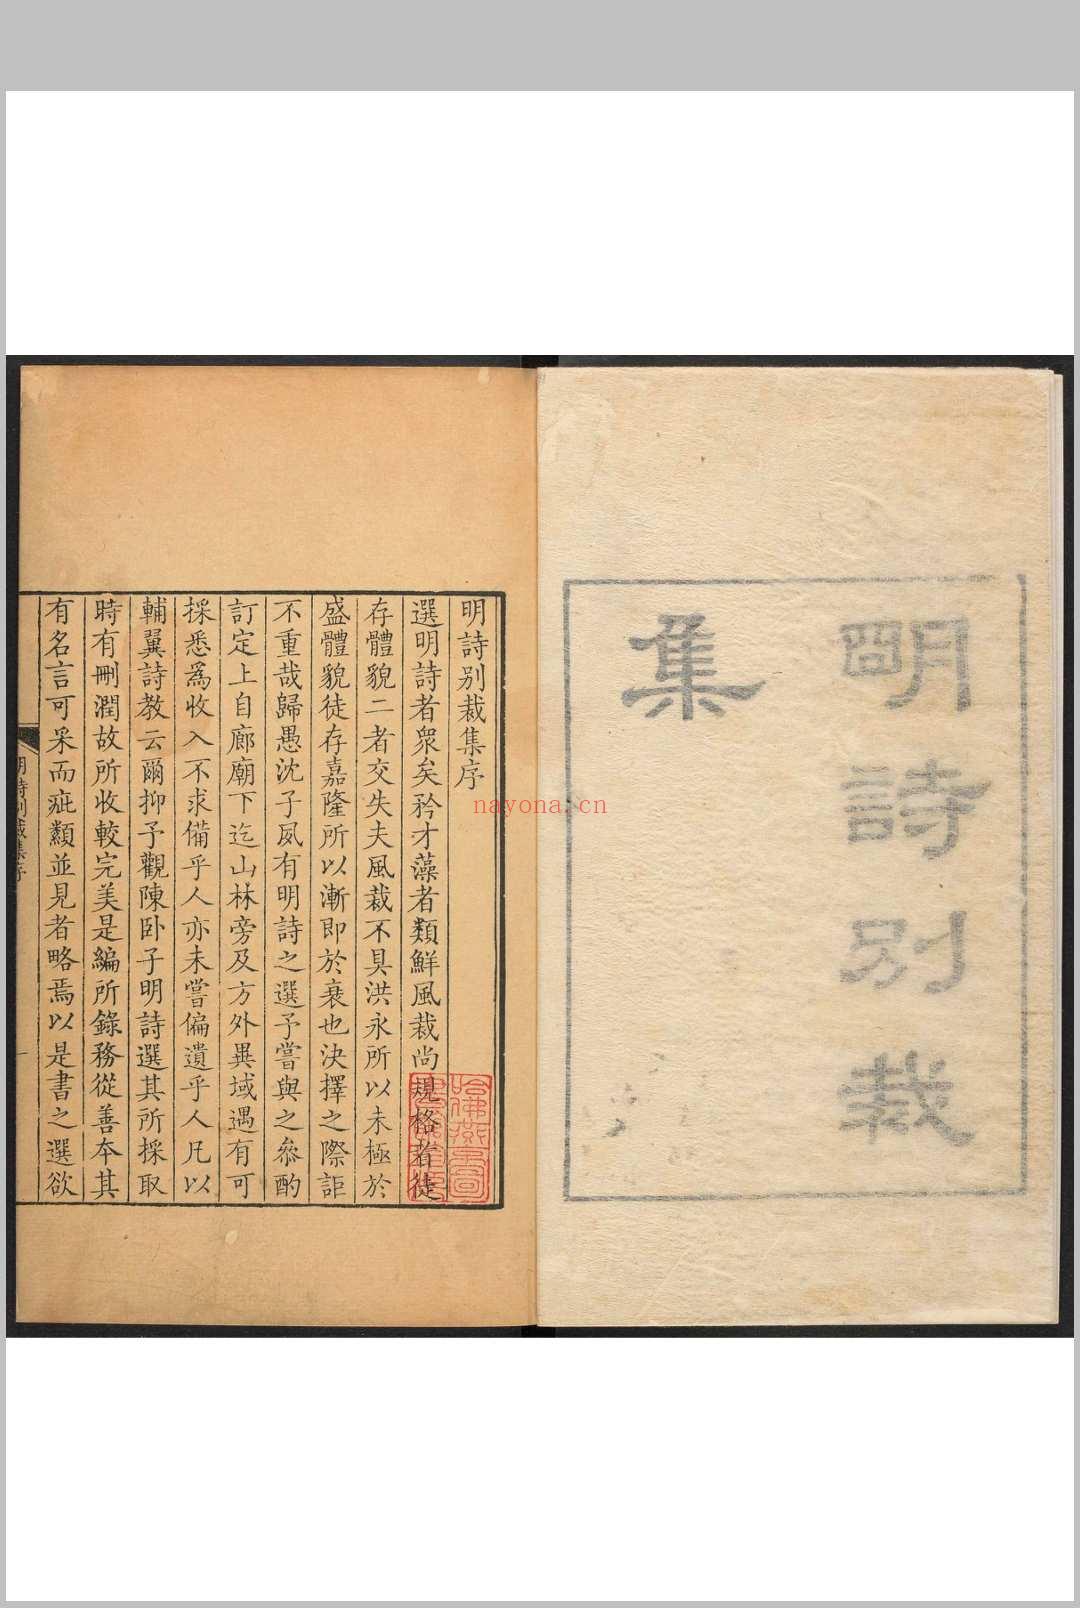 明詩別裁
集
明詩別裁集序
選明詩者衆矣矜才藻者類鮮風裁尚規格者徒
存體貌二者交失夫風裁不具洪永所以未極於
盛體貌徒存嘉隆所以漸即於衰也決擇之際詎
不重哉歸愚沈子夙有明詩之選予嘗與之叅酌
訂定上自廊廟下迄山林旁及方外異域遇有可
採悉爲收入不求備乎人亦未嘗偏遺乎人凡以
輔翼詩教云爾抑予觀陳卧子明詩選其所採取
時有刪潤故所收較完美是編所錄務從善本其
有名言可采而疵纇並見者略焉以是書之選欲
明詩別裁集序
一
哈佛燕京圖
書館
nayona.cn